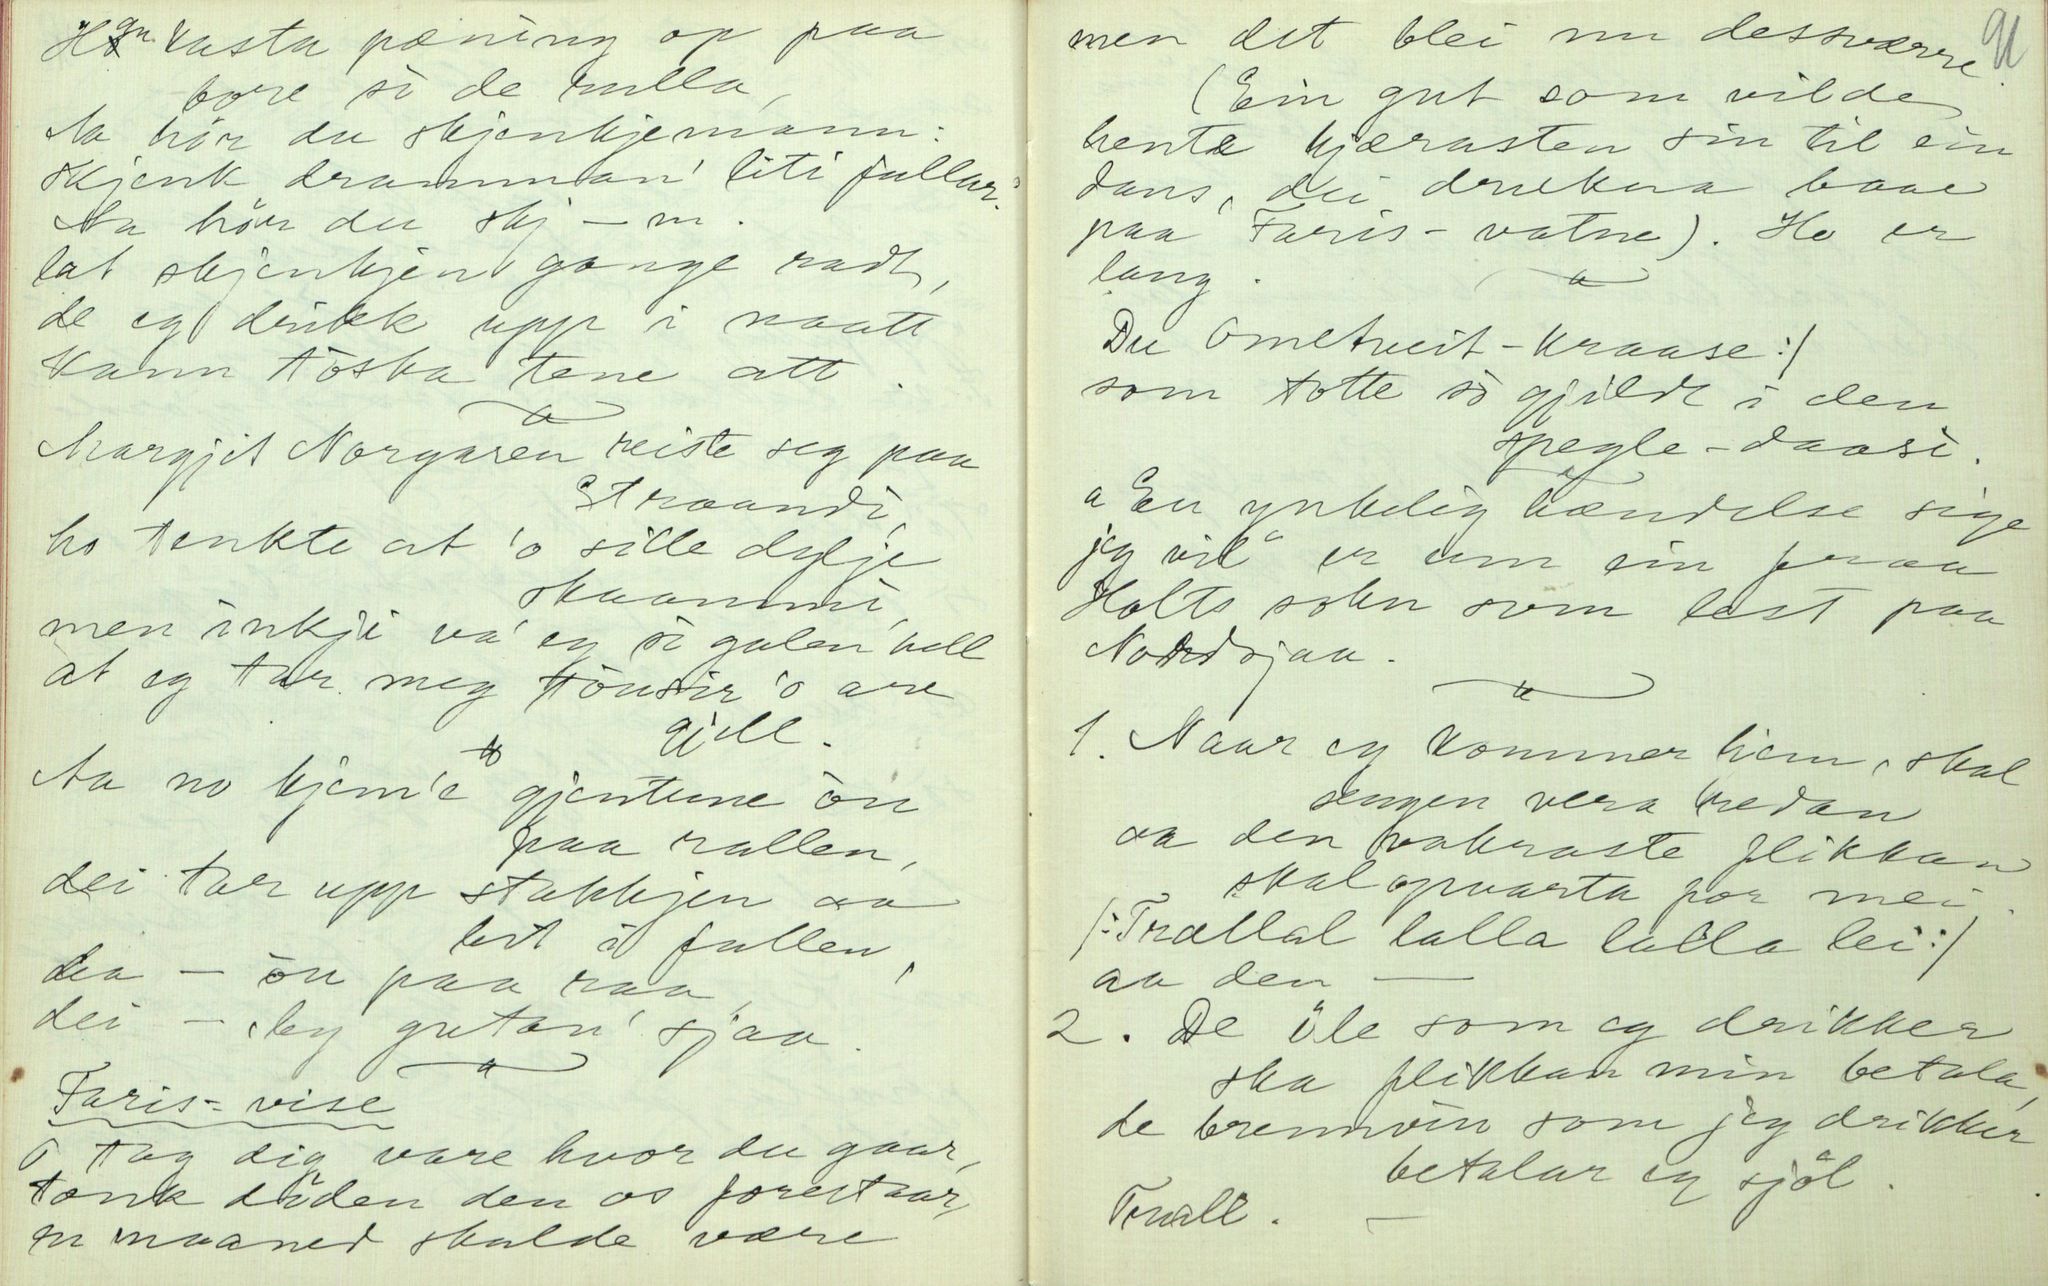 Han kasta pæning op paa
bore si de rulla,
Aa hör du skjenkjemann:
skjenk dramman' liti fullar.
Aa hör du skj – m.
lat skjenkjen gange radt,
de eg drikk upp i naatt
kann töska tene att.
Margjit Norgaren reiste seg paa
Straandi,
ho tenkte at 'o sille dylje
skaammi,
men inkji va' eg si galen hell
at eg tar meg tousir 'o are
gjell.
Aa no kjem'e gjentune ou
paa rallen,
dei tar upp stakkjen aa
let i fullen,
dea – ou paa raa,
dei – lėg gutan' sjaa.
Faris-vise
O tag dig vare hvor du gaar,
tænk döden den os forestaar,
en maaned skulde være
91
men det blei nu dessværre.
(Ein gut som vilde
hente kjærasten sin til ein
dans, dei drukna baae
paa Faris-vatne). Ho er
lang.
Du Ometveit-kraase :/
som totte so gjildt i den
spegle-daasi.
"En ynkelig hændelse sige
jeg vil" er um ein fraa
Holts sokn som lest paa
Nordsjaa.
1. Naar eg kommer hiem, skal
sengen vera redan
aa den vakraste flikkan
skal opvarta for mei.
/: Trallal lalla lalla lei :/
aa den —
2. De öle som eg drikker
ska flikkan min betala,
de brennvin som jeg drikker
betalar eg sjöl.
Trall. —